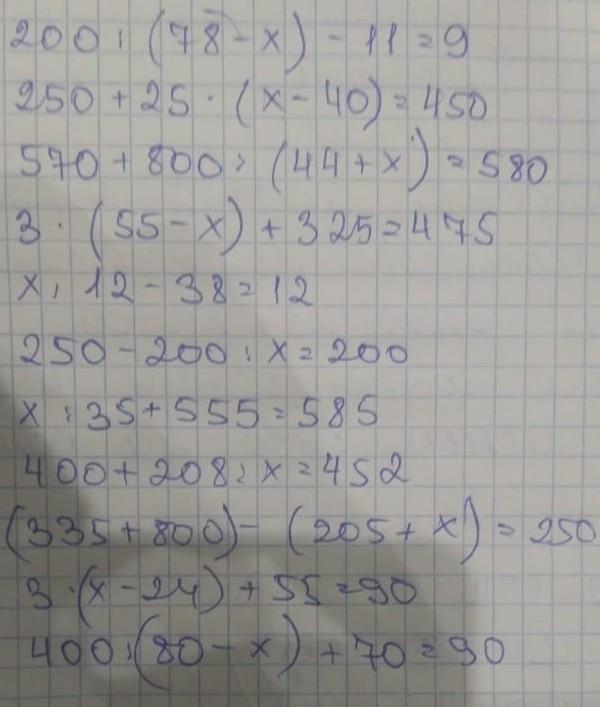 200 : (78 - x) - 11 = 9
250 + 25 · (x - 40) = 450
570 + 800 : (44 + x) = 580
3 · (55 - x) + 325 = 475
x : 12 - 38 = 12
250 - 200 : x = 200
x : 35 + 555 = 585
400 + 208 : x = 452
(335 + 800) - (205 + x) = 250
3 · (x - 24) + 55 = 90
400 : (80 - x) + 70 = 90